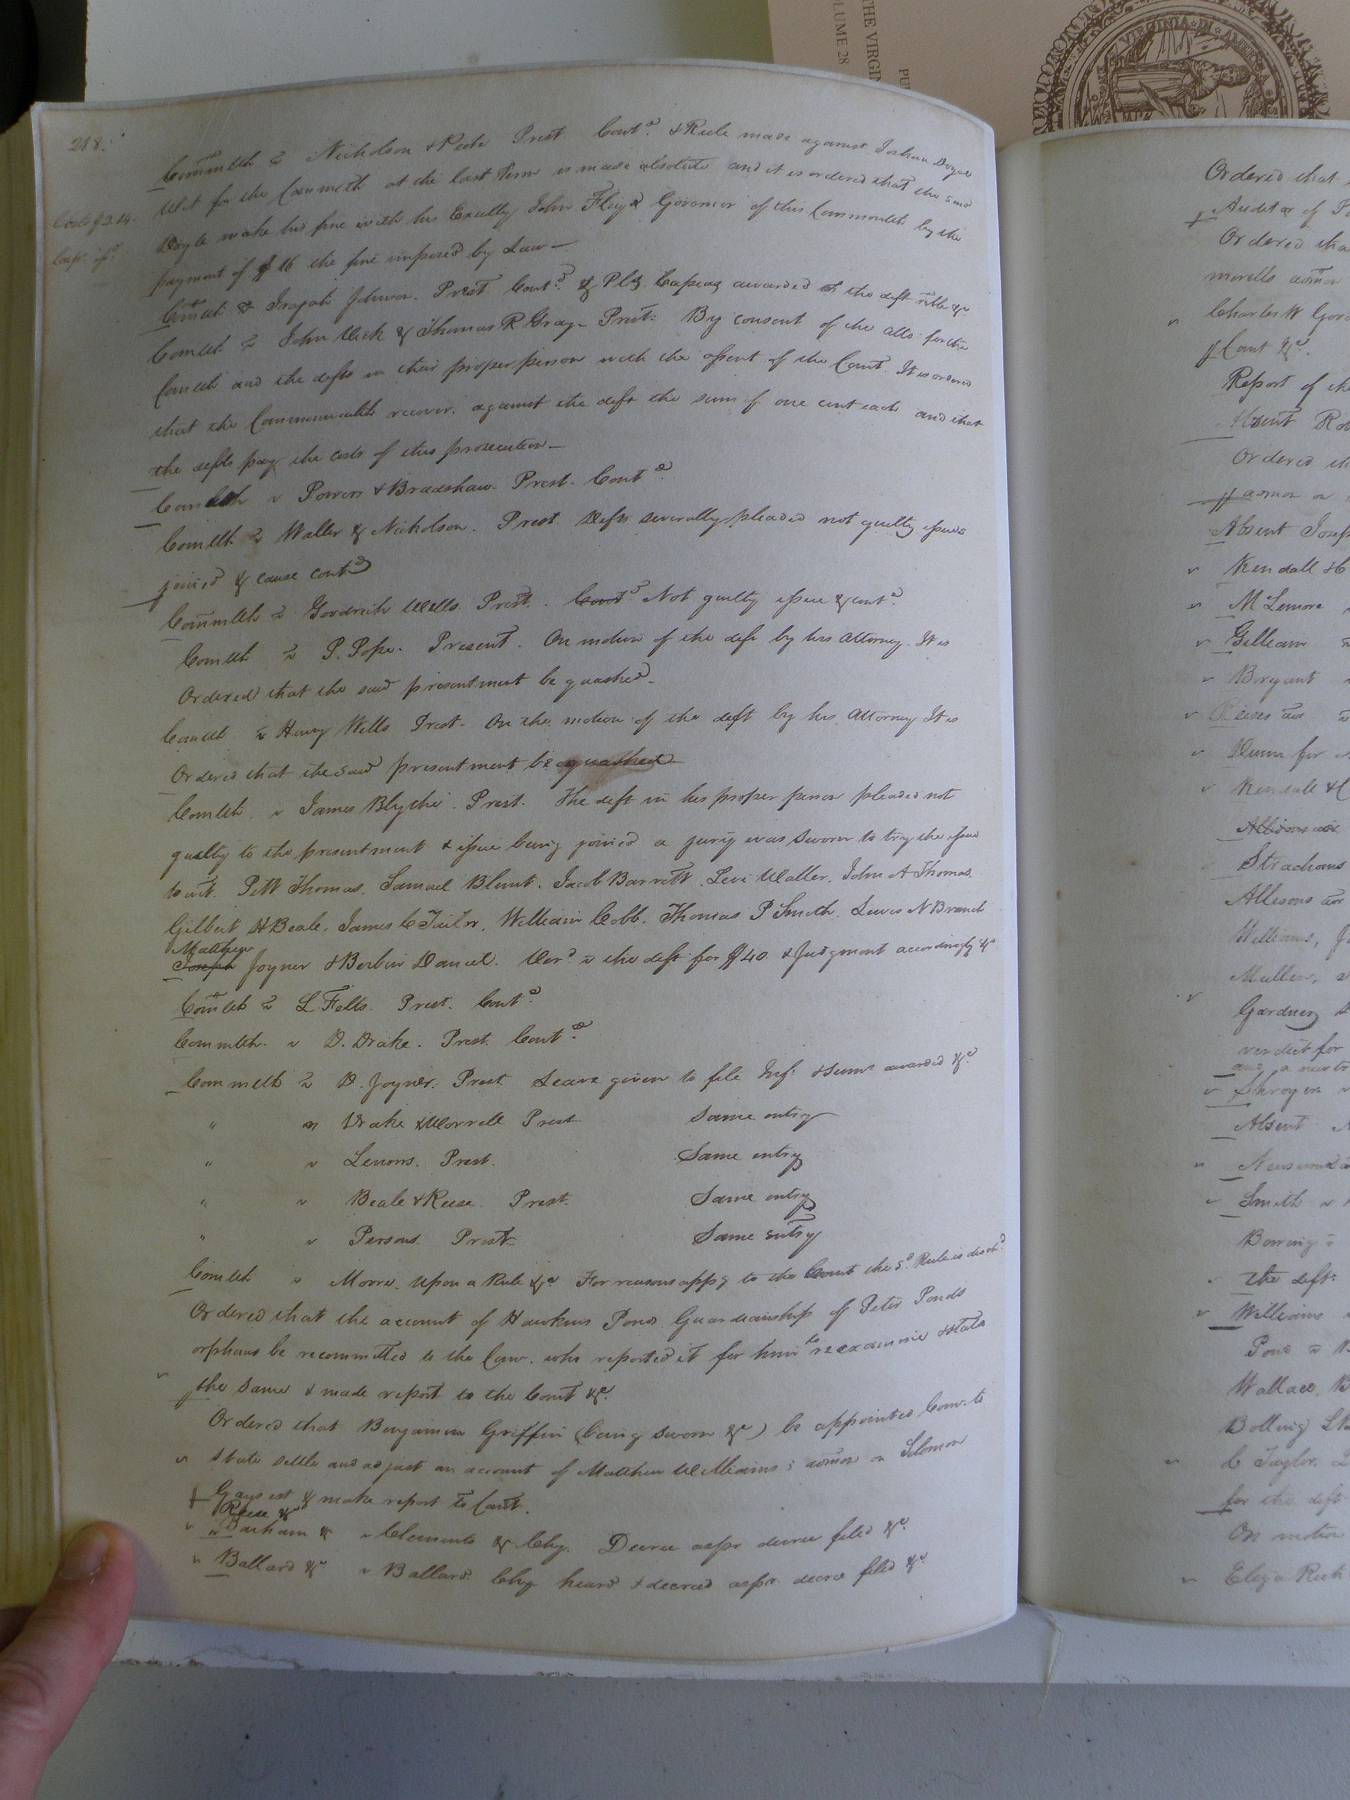 218.
Commlth v Nicholson & Pete Prest Contd. & Rule made against Joshua Doyel
Wit for the Commlth at the last Term is made absolute and it is ordered that the said
Costs $2.14.
Doyle make his fine with his Excelly John Floyd Governor of this Commonlth by the
payment of $16 the fine imposed by Law—
Comlth & Johnson. Prest Contd. & Capias awarded the deft &c
Comlth v John Vick & Thomas R Gray Prest. By consent of the atto for the
Comlth and the defts in their proper person with the assent of the Court. It is ordered
that the Commonwealth recover against the deft the sum of one cent each and that
the defts pay the costs of this prosecution—
Comlth v Powers & Bradshaw Prest. Contd
Comlth v Waller & Nicholson. Prest. Defts severally pleaded not guilty issues
joined & cause contd
Commlth v Goodrich Wells Prest. Contd Not guilty issue & contd.
Comlth v P. Pope. Present. On motion of the deft by his Attorney. It is
Ordered that the said presentment be quashed—
Comlth v Henry Wells Prest. On the motion of the deft by his Attorney It is
Ordered that the said presentment be quashed—
Comlth. v James Blythe. Prest. The deft in his proper person pleaded not
guilty to the presentment & issue being joined a jury was sworn to try the issue
to wit. Pitt Thomas, Samuel Blunt, Jacob Barrett, Levi Waller, John A Thomas,
Gilbert H Beale, James C Tailor, William Cobb, Thomas P Smith, Lewis N Branch
Matthew
Joseph Joyner & Daniel. Verd v the deft for $40 & Judgment accordingly &c
Comlth v L Fells. Prest. Contd.
Commlth. v D. Drake. Prest. Contd.
Commlth v D. Joyner. Prest Leave given to file Inf. & Sums awarded &c.
" v Drake & Worrell Prest Same entry
" v Lemons. Prest. Same entry
" v Beale & Reese. Prest. Same entry
" v Persons Prest. Same entry
Comlth v Moore. Upon a Rule &c For reasons appg to the Court the sd. Rule is disch'd
Ordered that the account of Hawkins Pond Guardianship of Peter Ponds
orphans be recommitted to the Com. who reported it for him to reexamine & state
the same & made report to the Court &c.
Ordered that Benjamin Griffin (being sworn &c) be appointed Com. to
state settle and adjust an account of Matthew Williams admor on Solomon
Grays est & make report to Court.
Reese &c
v Barham & v Clements & Chy. Decree as pr decree filed &c.
v Ballard &c v Ballard. Chy heard & decreed as pr. decree filed &c
THE VIRGIN
VOLUME 28
PU
VIRGINIA
Ordered that
Auditor of
Ordered tha
morells admr
Charles W
Cont &c.
Report of the
Absent
Ordered th
Absent Josep
v Kendall & C
v M Lemore
v Gilliam
v Bryant
v Dunn for
v Kendall & C
Strachans
Allisons
Williams, J
Gardner
verdict for
Absent
v Smith v
the deft
v Williams
Pond v
Wallace
Bolling
C Taylor
for the deft
On motion